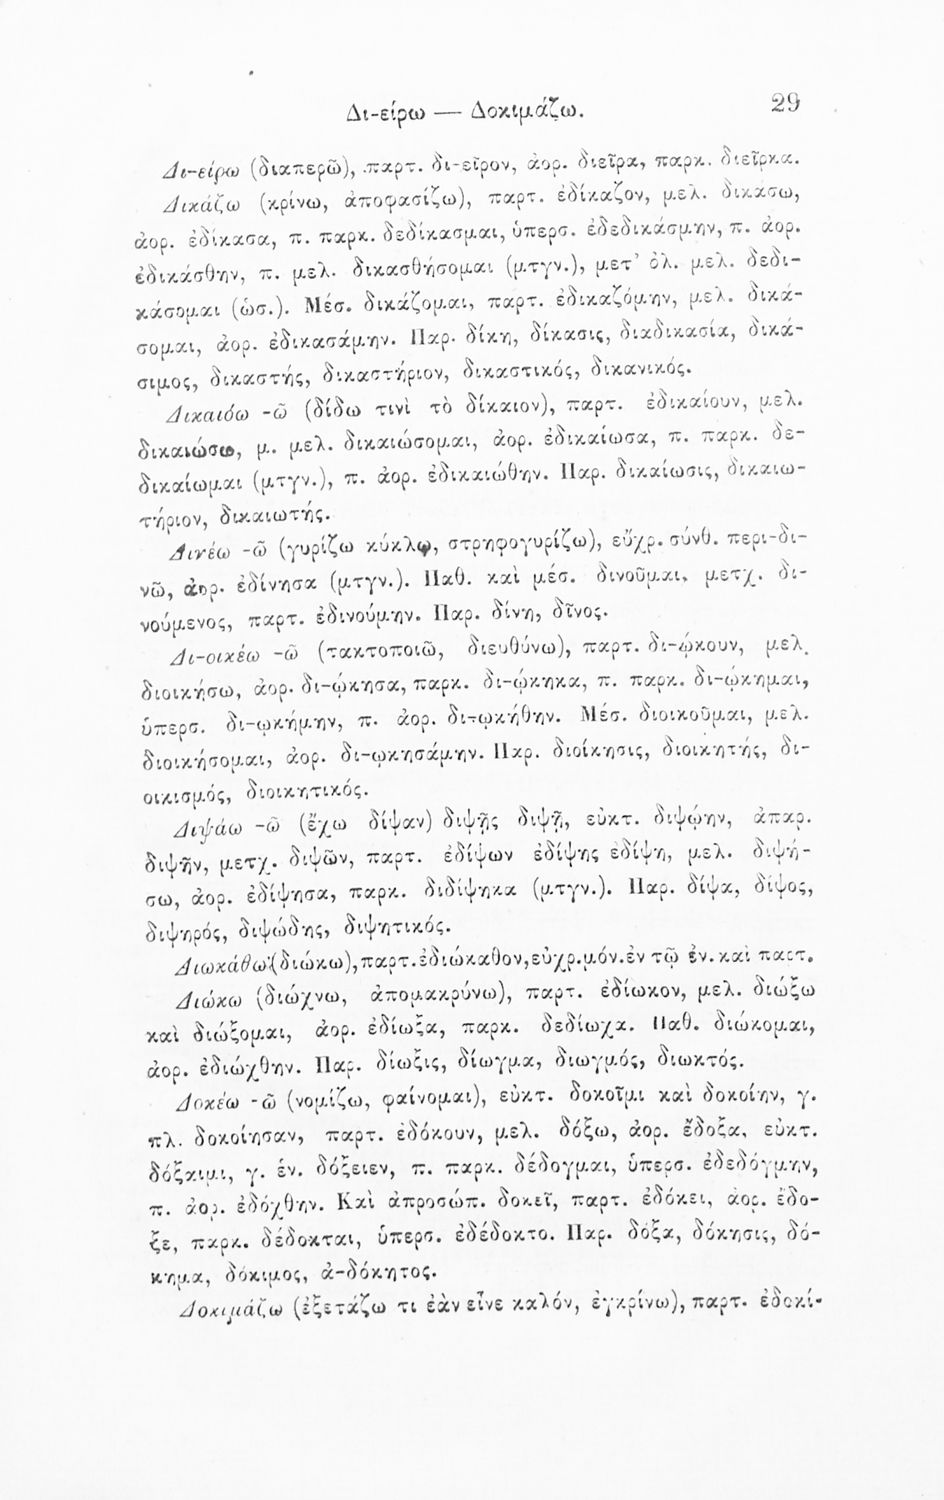 Δι-είρω — Δοκιμάζω. 29
Δι-είρω (διαπερῶ), παρτ. δι-εῖρον, ἀορ. διεῖρα, παρκ. διεῖρκα.
Δικάζω (κρίνω, ἀποφασίζω), παρτ. ἐδίκαζον, μελ. δικάσω,
ἀορ. ἐδίκασα, π. παρκ. δεδίκασμαι, ὑπερσ. ἐδεδικάσμην, π. ἀορ.
ἐδικάσθην, π. μελ. δικασθήσομαι (μτγν.), μετ' ὀλ. μελ. δεδι-
κάσομαι (ὡσ.). Μέσ. δικάζομαι, παρτ. ἐδικαζόμην, μελ. δικά-
σομαι, ἀορ. ἐδικασάμην. Παρ. δίκη, δίκασις, διαδικασία, δικά-
σιμος, δικαστής, δικαστήριον, δικαστικός, δικανικός.
Δικαιόω -ῶ (δίδω τινὶ τὸ δίκαιον), παρτ. ἐδικαίουν, μελ.
δικαιώσω, μ. μελ. δικαιώσομαι, ἀορ. ἐδικαίωσα, π. παρκ. δε-
δικαίωμαι (μτγν.), π. ἀορ. ἐδικαιώθην. Παρ. δικαίωσις, δικαιω-
τήριον, δικαιωτής.
Δινέω -ῶ (γυρίζω κύκλῳ, στρηφογυρίζω), εὔχρ. σύνθ. περι-δι-
νῶ, ἀορ. ἐδίνησα (μτγν.). Παθ. καὶ μέσ. δινοῦμαι, μετχ. δι-
νούμενος, παρτ. ἐδινούμην. Παρ. δίνη, δῖνος.
Δι-οικέω -ῶ (τακτοποιῶ, διευθύνω), παρτ. δι-ῴκουν, μελ.
διοικήσω, ἀορ. δι-ῴκησα, παρκ. δι-ῴκηκα, π. παρκ. δι-ῴκημαι,
ὑπερσ. δι-ῳκήμην, π. ἀορ. δι-ῳκήθην. Μέσ. διοικοῦμαι, μελ.
διοικήσομαι, ἀορ. δι-ῳκησάμην. Παρ. διοίκησις, διοικητής, δι-
οικισμός, διοικητικός.
Διψάω -ῶ (ἔχω δίψαν) διψῇς διψῇ, εὐκτ. διψῴην, ἀπαρ.
διψῆν, μετχ. διψῶν, παρτ. ἐδίψων ἐδίψης ἐδίψη, μελ. διψή-
σω, ἀορ. ἐδίψησα, παρκ. διδίψηκα (μτγν.). Παρ. δίψα, δίψος,
διψηρός, διψώδης, διψητικός.
Διωκάθω (διώκω), παρτ. ἐδιώκαθον, εὐχρ. μόν. ἐν τῷ ἐν. καὶ παρτ.
Διώκω (διώχνω, ἀπομακρύνω), παρτ. ἐδίωκον, μελ. διώξω
καὶ διώξομαι, ἀορ. ἐδίωξα, παρκ. δεδίωχα. Παθ. διώκομαι,
ἀορ. ἐδιώχθην. Παρ. δίωξις, δίωγμα, διωγμός, διωκτός.
Δοκέω -ῶ (νομίζω, φαίνομαι), εὐκτ. δοκοῖμι καὶ δοκοίην, γ.
πλ. δοκοίησαν, παρτ. ἐδόκουν, μελ. δόξω, ἀορ. ἔδοξα, εὐκτ.
δόξαιμι, γ. ἑν. δόξειεν, π. παρκ. δέδογμαι, ὑπερσ. ἐδεδόγμην,
π. ἀορ. ἐδόχθην. Καὶ ἀπροσώπ. δοκεῖ, παρτ. ἐδόκει, ἀορ. ἔδο-
ξε, παρκ. δέδοκται, ὑπερσ. ἐδέδοκτο. Παρ. δόξα, δόκησις, δό-
κημα, δόκιμος, ἀ-δόκητος.
Δοκιμάζω (ἐξετάζω τι ἐὰν εἶνε καλόν, ἐγκρίνω), παρτ. ἐδοκί-